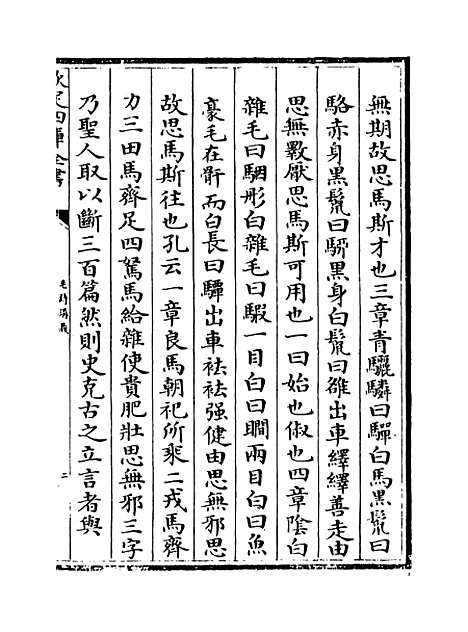 無期故思馬斯才也三章青驪驎曰驒白馬黒鬛曰
駱赤身黒鬛曰駵黒身白鬛曰雒出車繹繹善走由
思無斁厭思馬斯可用也一曰始也俶也四章陰白
雜毛曰駰彤白雜毛曰騢一目白曰瞷兩目白曰魚
豪毛在骭而白長曰驔出車袪袪强健由思無邪思
故思馬斯徃也孔云一章良馬朝祀所乘二戎馬齊
力三田馬齊足四駑馬給雜使貴肥壯思無邪三字
乃聖人取以斷三百篇然則史克古之立言者與
欽定四庫全書
毛詩講義
二